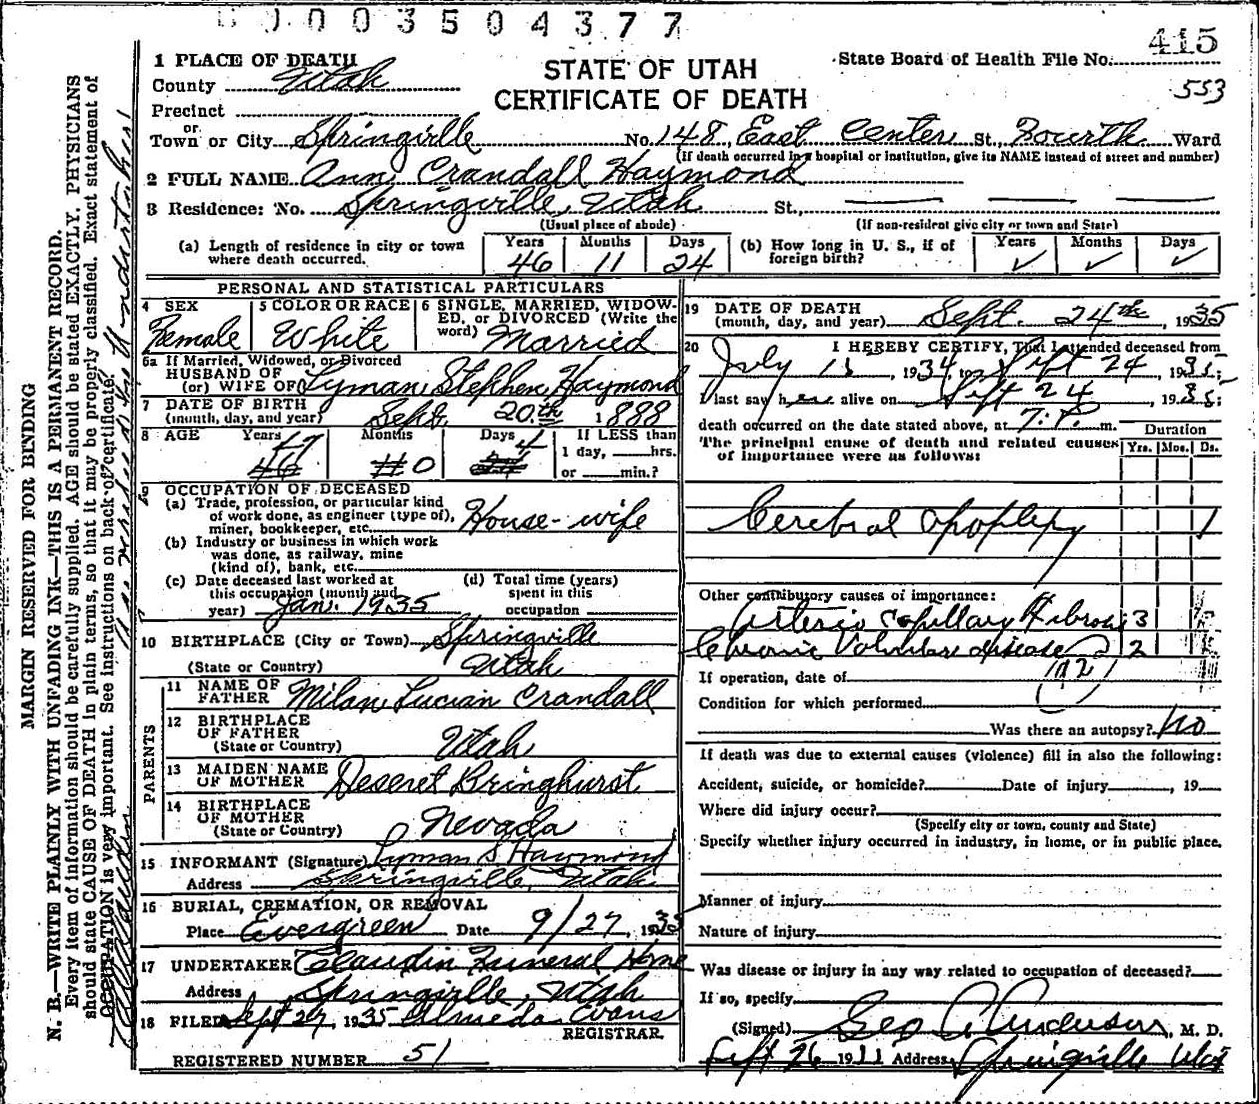 0003504377
415
1 PLACE OF DEATH
STATE OF UTAH
State Board of Health File No.
County Utah
CERTIFICATE OF DEATH
553
Precinct
or
Town or City Springville No. 148 East Center St. Fourth Ward
(If death occurred in a hospital or institution, give its NAME instead of street and number)
2 FULL NAME Ann Crandall Haymond
3 Residence: No. Springville, Utah St.,
(Usual place of abode) (If non-resident give city or town and State)
(a) Length of residence in city or town where death occurred. Years 46 Months 11 Days 24 (b) How long in U. S., if of foreign birth? Years ✓ Months ✓ Days ✓
PERSONAL AND STATISTICAL PARTICULARS
4 SEX Female
5 COLOR OR RACE White
6 SINGLE, MARRIED, WIDOW-
ED, or DIVORCED (Write the
word) Married
6a If Married, Widowed, or Divorced
HUSBAND OF
(or) WIFE OF Lyman Stephen Haymond
7 DATE OF BIRTH
(month, day, and year) Sept. 20th 1888
8 AGE Years 47 46 Months 0 Days 4 If LESS than
1 day, hrs.
or min.?
9 OCCUPATION OF DECEASED
(a) Trade, profession, or particular kind
of work done, as engineer (type of),
miner, bookkeeper, etc. House-wife
(b) Industry or business in which work
was done, as railway, mine
(kind of), bank, etc.
(c) Date deceased last worked at
this occupation (month and
year) Jan. 1935
(d) Total time (years)
spent in this
occupation
10 BIRTHPLACE (City or Town) Springville
(State or Country) Utah
PARENTS
11 NAME OF
FATHER Milan Lucian Crandall
12 BIRTHPLACE
OF FATHER
(State or Country) Utah
13 MAIDEN NAME
OF MOTHER Deseret Bringhurst
14 BIRTHPLACE
OF MOTHER
(State or Country) Nevada
15 INFORMANT (Signature) Lyman S Haymond
Address Springville, Utah
16 BURIAL, CREMATION, OR REMOVAL
Place Evergreen Date 9/27, 1935
17 UNDERTAKER Claudin Funeral Home
Address Springville, Utah
18 FILED Sept 27, 1935 Almeda Evans
REGISTRAR.
REGISTERED NUMBER 51
19 DATE OF DEATH
(month, day, and year) Sept. 24th, 1935
20 I HEREBY CERTIFY, That I attended deceased from
July 1934, to Sept 24, 1935;
I last saw her alive on Sept 24, 1935;
death occurred on the date stated above, at 7:P. m.
The principal cause of death and related causes
of importance were as follows:
Duration
Yrs. Mos. Ds.
Cerebral apoplexy 1
Other contributory causes of importance:
Arterio Capillary Fibrosis 3
Chronic Valvular disease 2
If operation, date of
Condition for which performed
Was there an autopsy? no
If death was due to external causes (violence) fill in also the following:
Accident, suicide, or homicide? Date of injury, 19
Where did injury occur?
(Specify city or town, county and State)
Specify whether injury occurred in industry, in home, or in public place.
Manner of injury
Nature of injury
Was disease or injury in any way related to occupation of deceased?
If so, specify
(Signed) Geo A Anderson, M. D.
Sept 26 19 Address Springville Utah
MARGIN RESERVED FOR BINDING
N. B.—WRITE PLAINLY WITH UNFADING INK—THIS IS A PERMANENT RECORD.
Every item of information should be carefully supplied. AGE should be stated EXACTLY. PHYSICIANS
should state CAUSE OF DEATH in plain terms, so that it may be properly classified. Exact statement of
OCCUPATION is very important. See instructions on back of certificate.